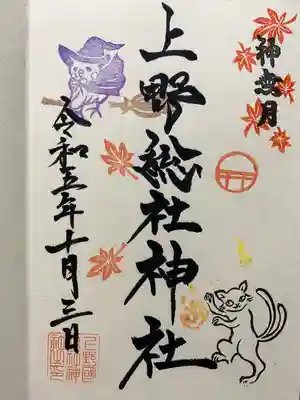 神無月
上野総社神社
令和五年十月三日